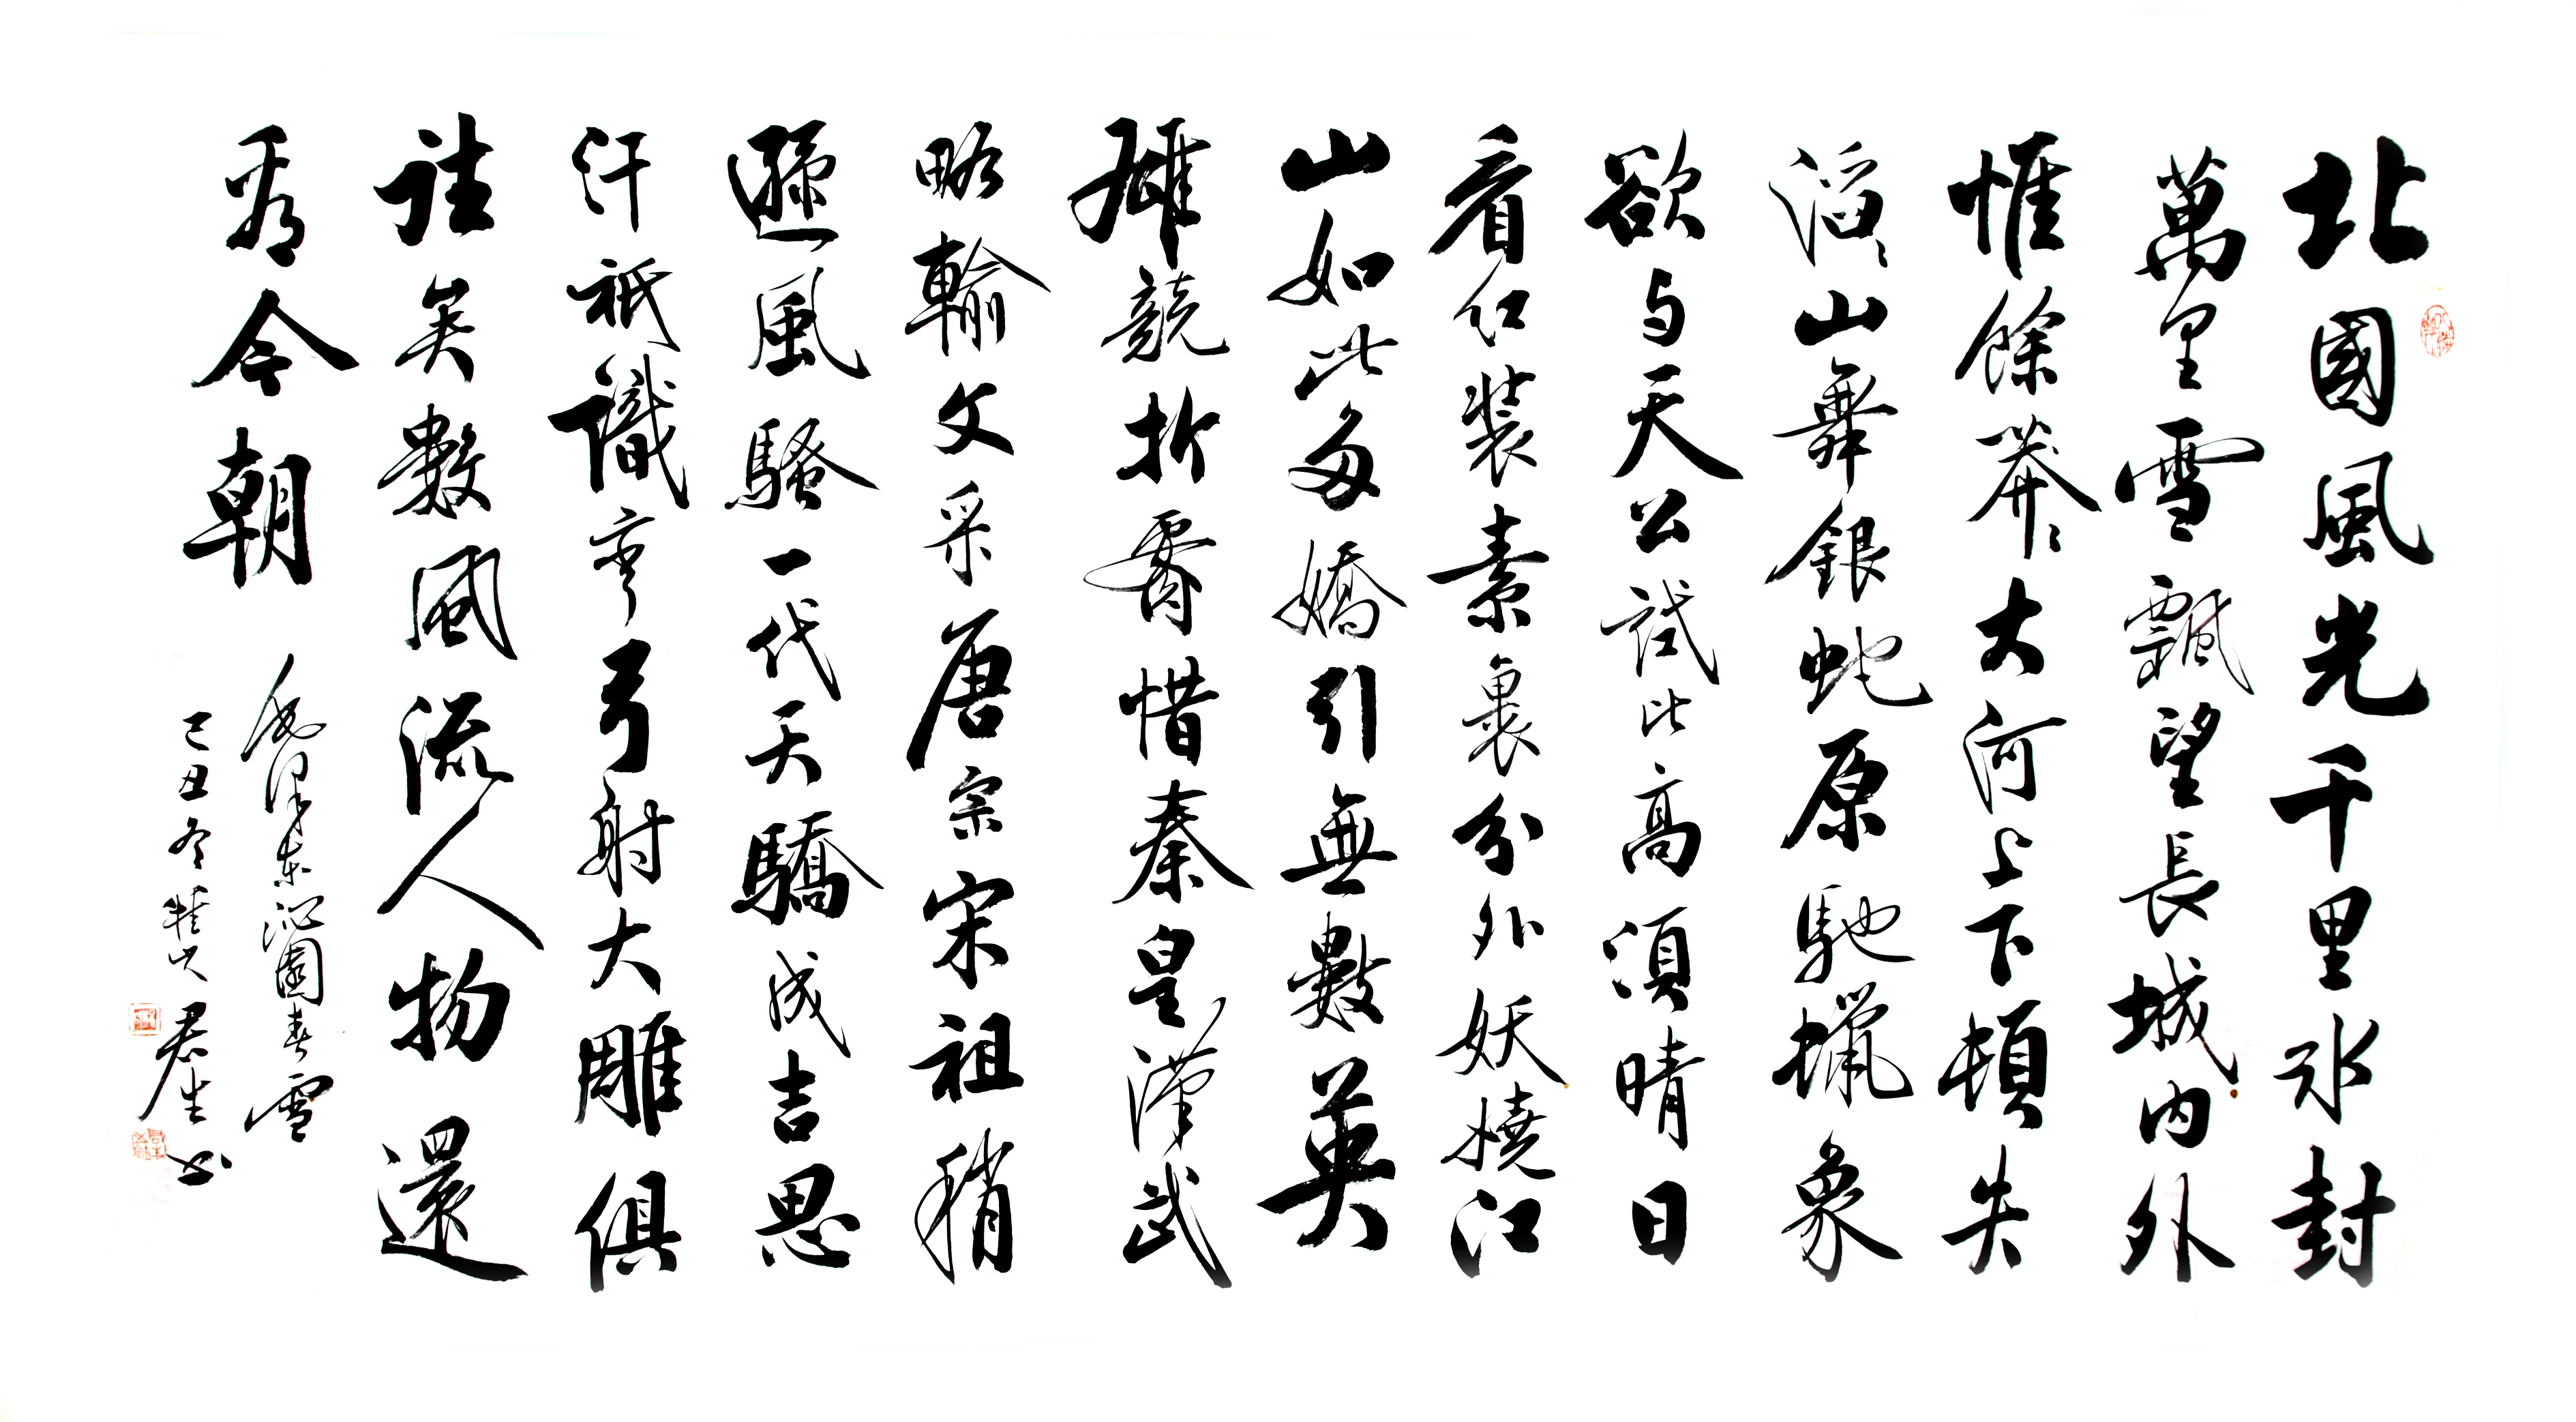 北國風光千里冰封
萬里雪飄望長城内外
惟餘莽々大河上下頓失
滔々山舞銀蛇原馳蠟象
欲与天公試比高須晴日
看红装素裹分外妖嬈江
山如此多嬌引無數英
雄競折腰惜秦皇漢武
略輸文采唐宗宋祖稍
遜風騷一代天驕成吉思
汗祇識彎弓射大雕俱
往矣數風流人物還
看今朝
毛澤東沁園春雪
己丑冬君生书